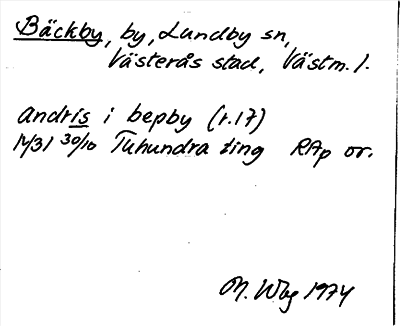 Bäckby, by, Lundby sn,
Västerås stad, Västm. l.
andris i bepby (r.17)
1431 30/10 Tuhundra ting RAp or.
M. Wbg 1974